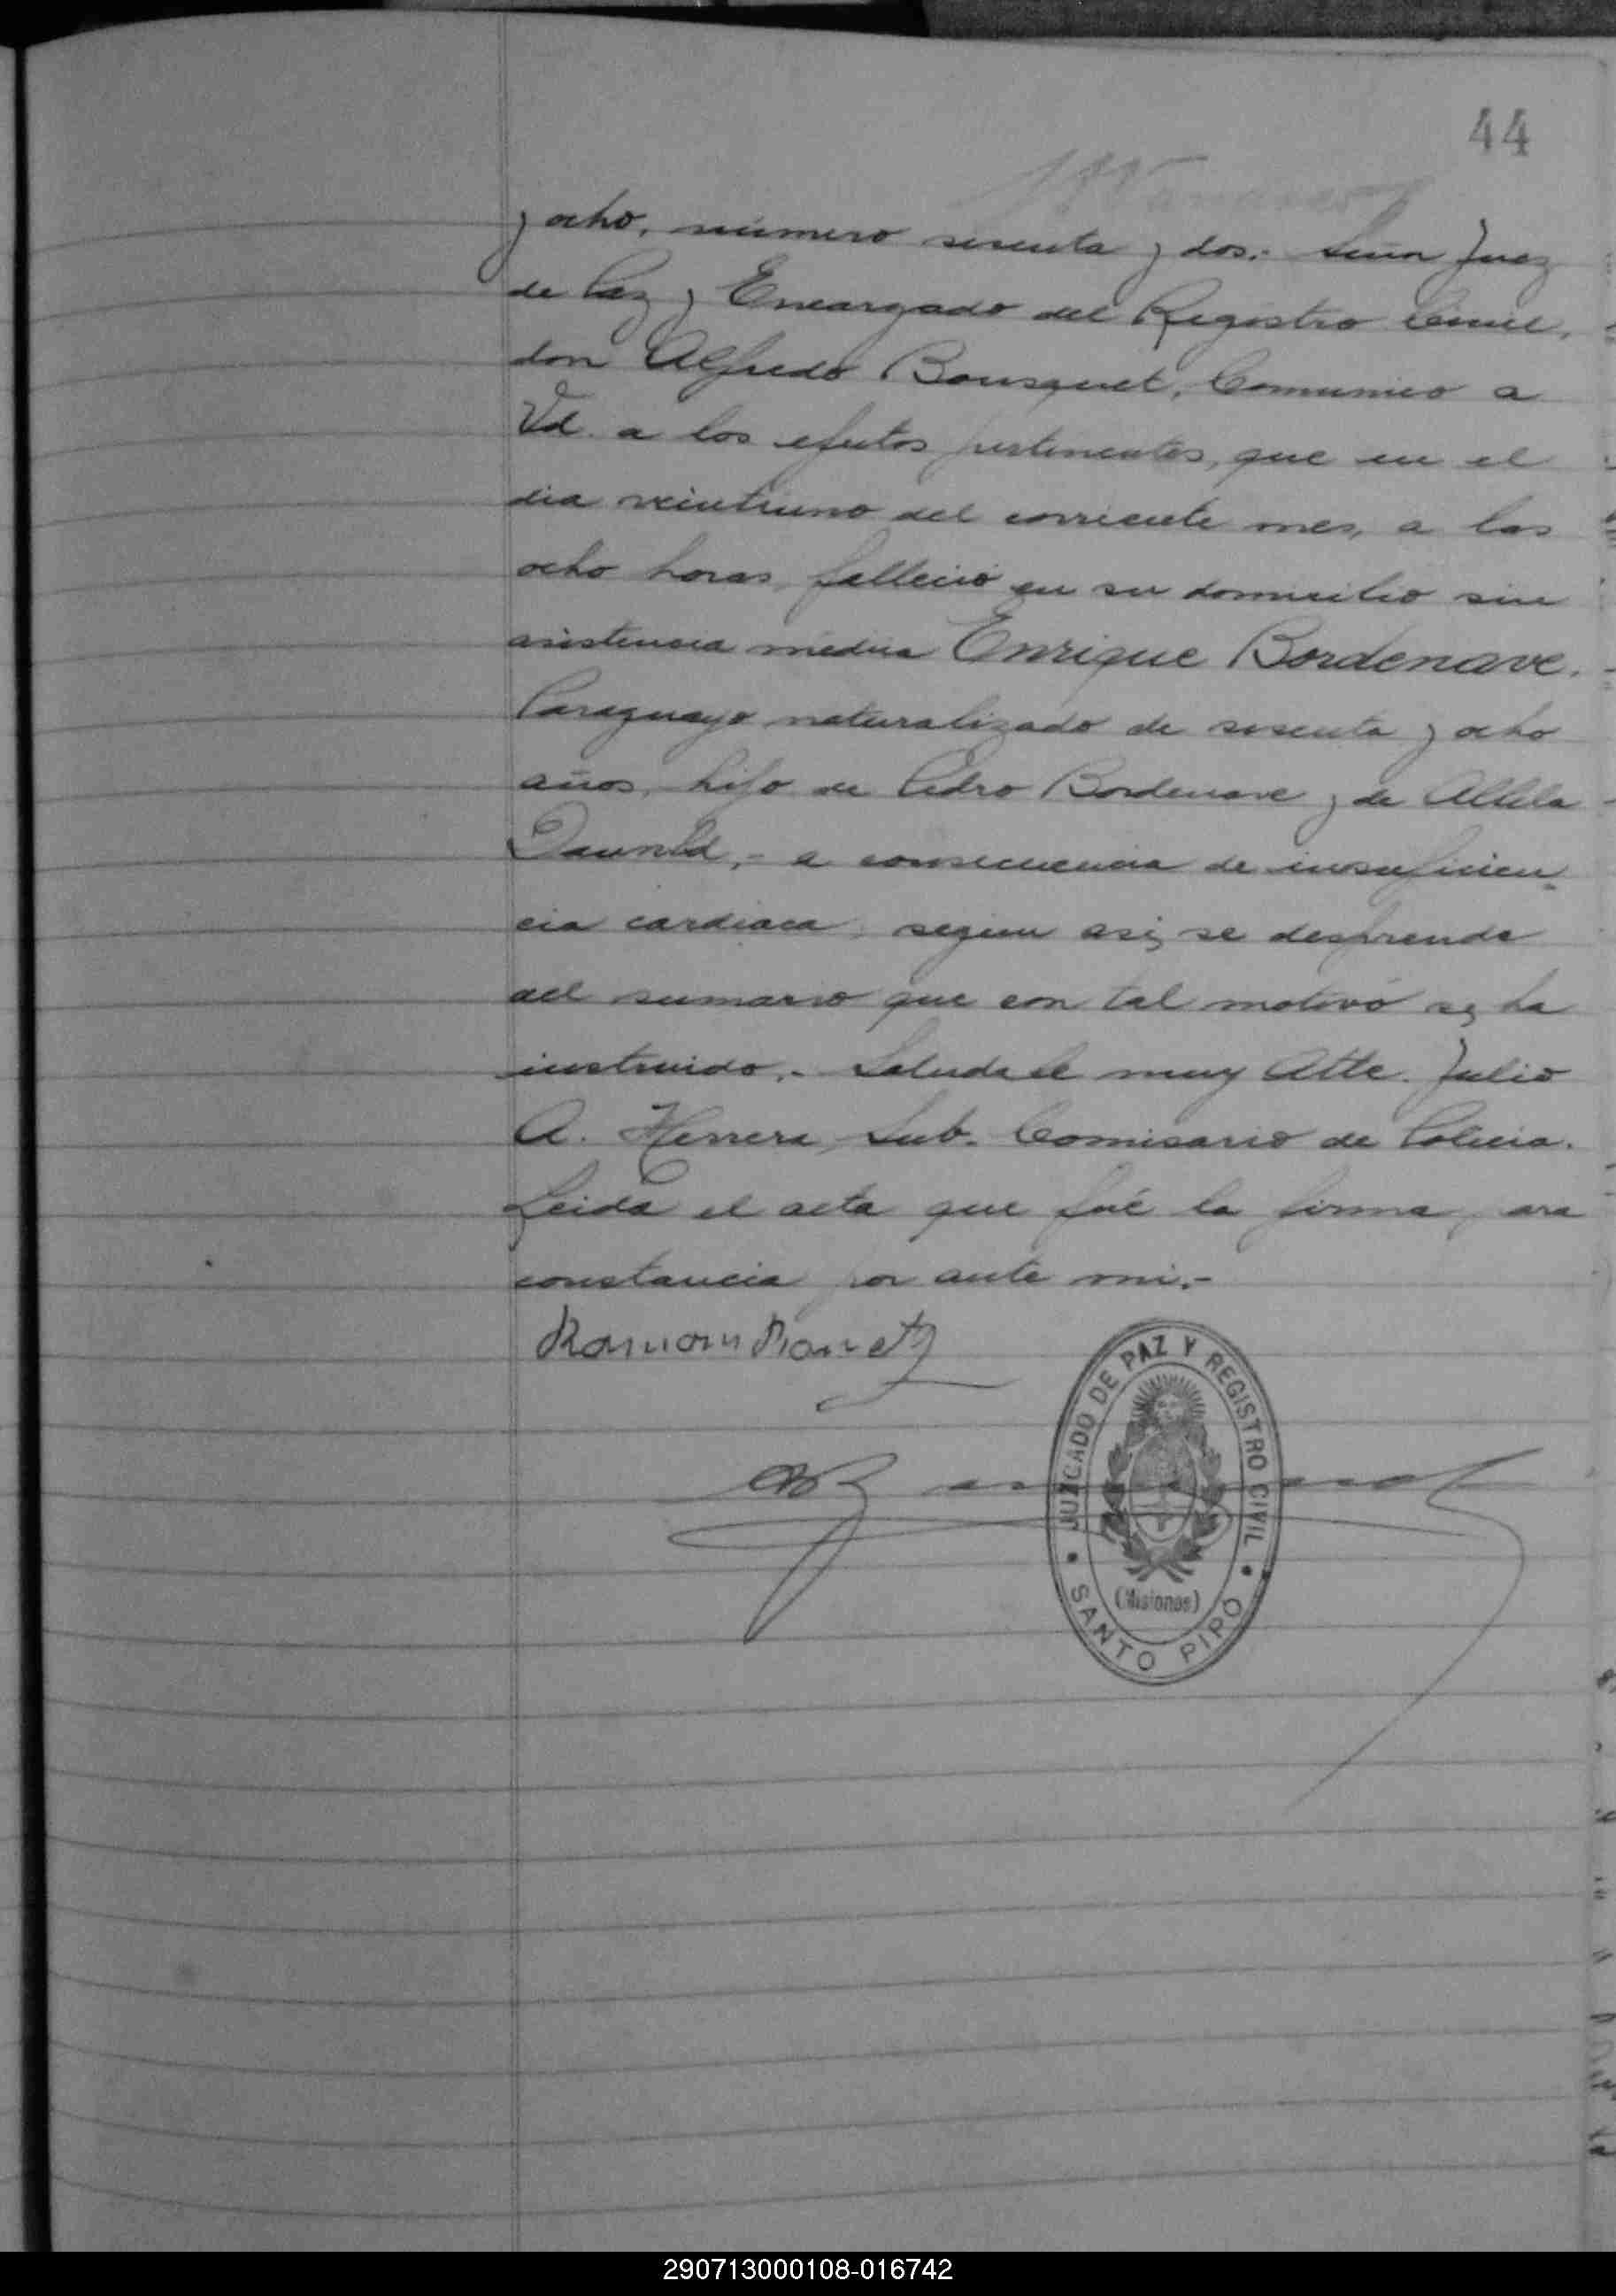 44
y ocho, número sesenta y dos.- Señor Juez
de Paz y Encargado del Registro Civil,
don Alfredo Bousquet. Comunico a
Vd. a los efectos pertinentes, que en el
dia veintiuno del corriente mes, a las
ocho horas, falleció en su domicilio sin
asistencia médica Enrique Bordenave.
Paraguayo naturalizado de sesenta y ocho
años, hijo de Pedro Bordenave y de
a consecuencia de insuficien-
cia cardiaca, segun asi, se desprende
del sumario que con tal motivó se, ha
instruido.- Saluda al muy Atte. Julio
A. Herrera, Sub. Comisario de Policia.
Leida el acta que fué la firma para
constancia por ante mi.-
Ramon
JUZGADO DE PAZ Y REGISTRO CIVIL
(Misiones)
SANTO PIPO
290713000108-016742